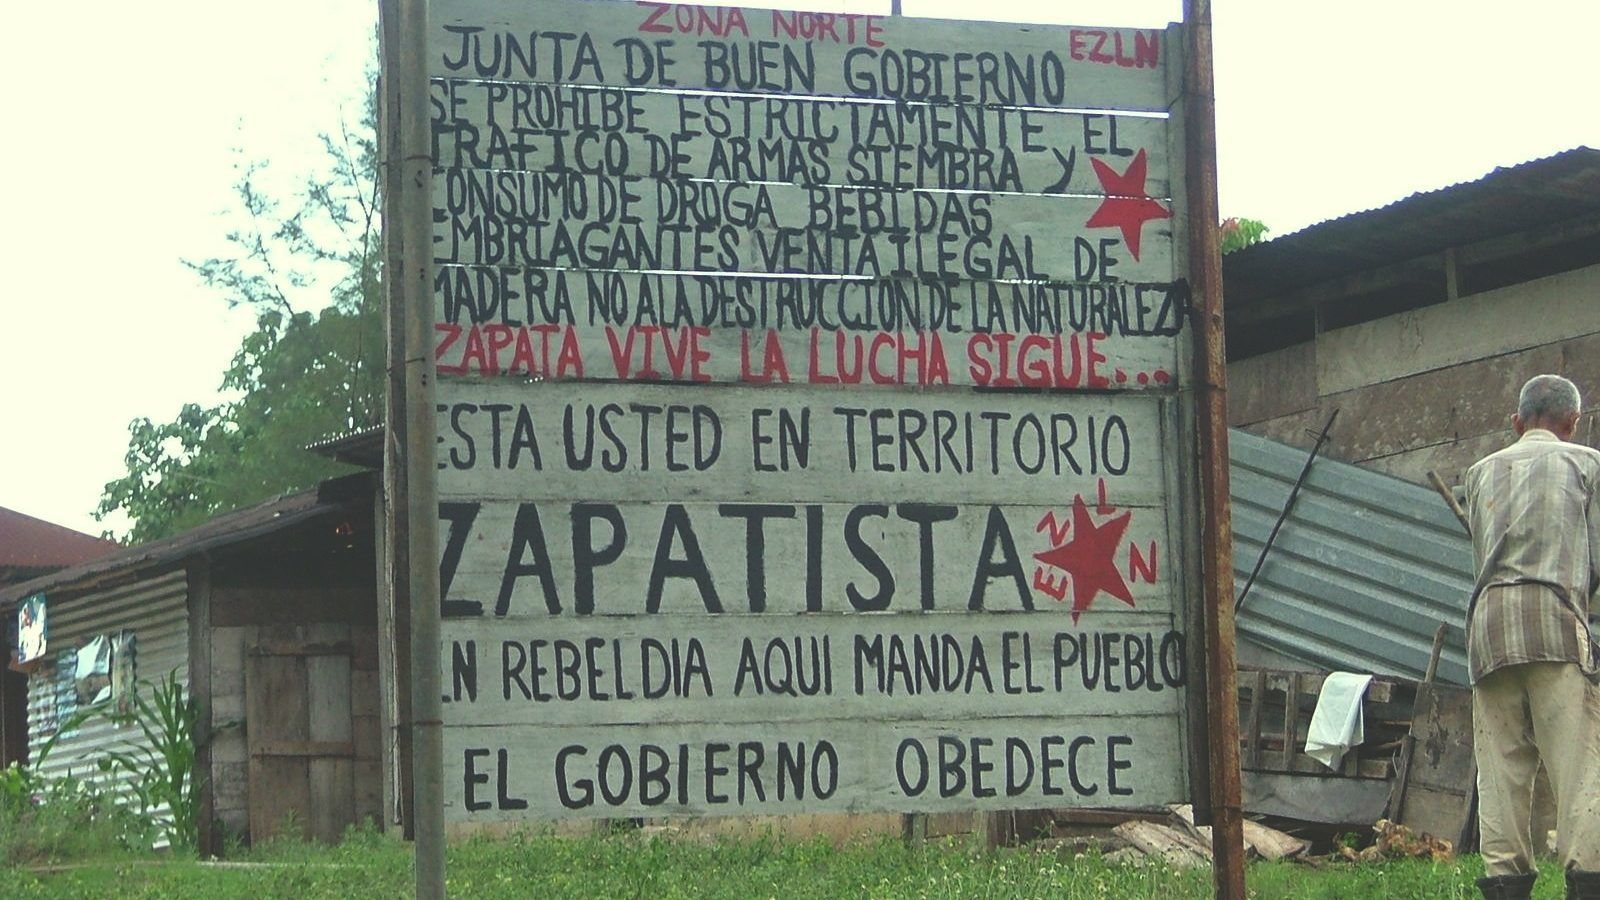 ZONA NORTE
EZLN
JUNTA DE BUEN GOBIERNO
SE PROHIBE ESTRICTAMENTE EL
TRAFICO DE ARMAS SIEMBRA Y
CONSUMO DE DROGA BEBIDAS
EMBRIAGANTES VENTA ILEGAL DE
MADERA NO A LA DESTRUCCION DE LA NATURALEZA
ZAPATA VIVE LA LUCHA SIGUE...
ESTA USTED EN TERRITORIO
ZAPATISTA
EZLN
EN REBELDIA AQUI MANDA EL PUEBLO
EL GOBIERNO OBEDECE